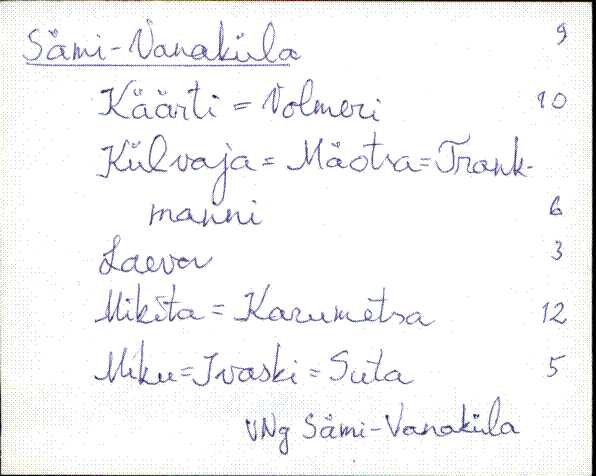 Sämi-Vanaküla 9
Käärti = Volmeri 10
Külvaja = Mäotsa = Trank-
manni 6
Laeva 3
Mikita = Karumetsa 12
Miku = Ivaski = Suta 5
VNg Sämi-Vanaküla